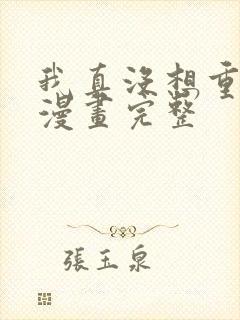 我真没想重
漫畫完整
張玉泉